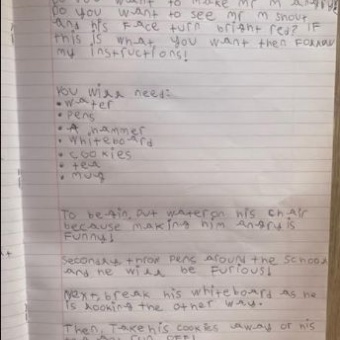 Do you want to make mr m angry?
Do you want to see mr m snout
and his face turn bright red? IF
this is what you want then Follow
my instructions!
you will need:
• water
• pens
• A hammer
• whiteboard
• cookies
• tea
• mug
To begin, put water on his chair
because making him angry is
Funny!
Secondly throw pens around the school
and he will be furious!
Next, break his whiteboard as he
is looking the other way.
Then, Take his cookies away or his